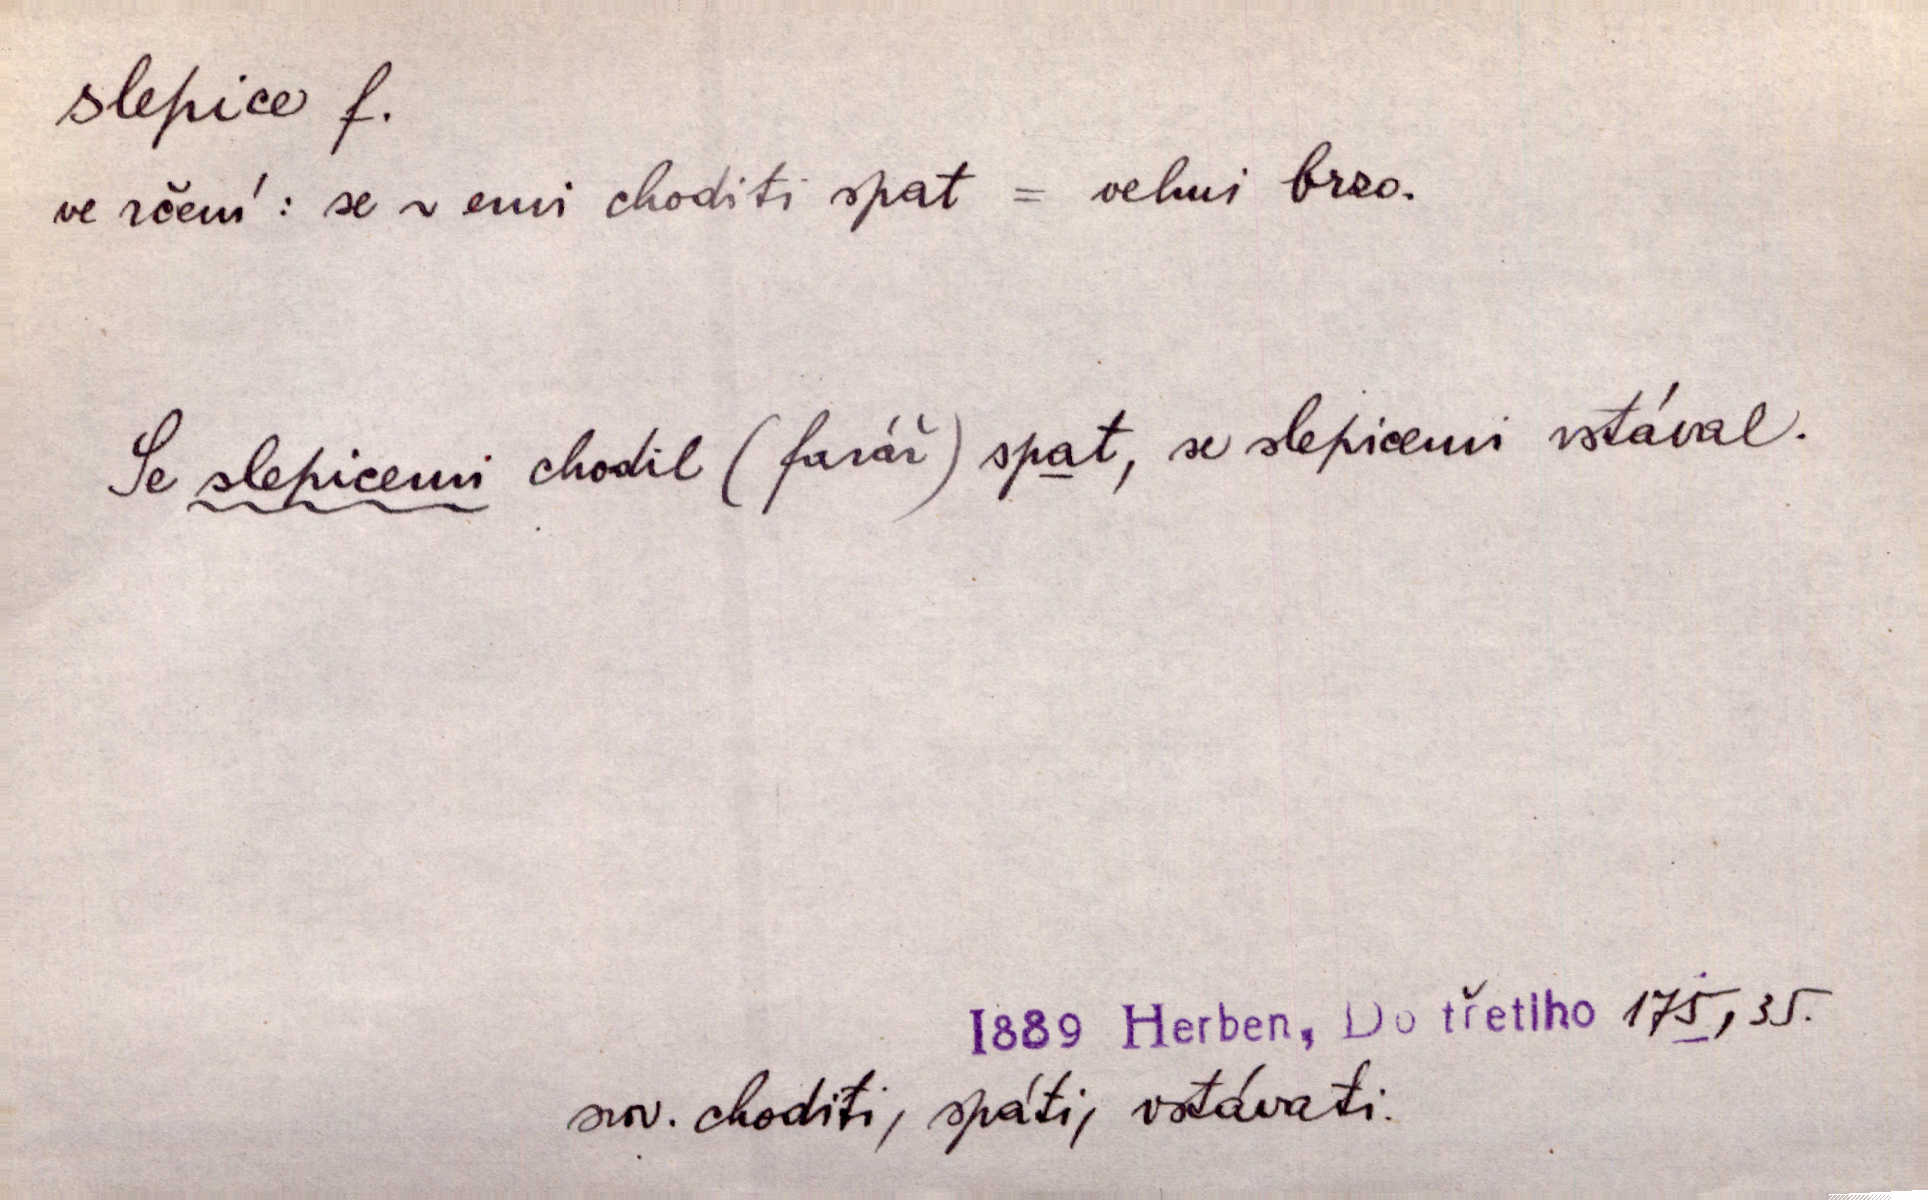 slepice f.
ve rčení: se ~ emi choditi spat = velmi brzo.
Se slepicemi chodil (farář) spat, se slepicemi vstával.
1889 Herben, Do třetího 175, 35.
srov. choditi, spáti, vstávati.